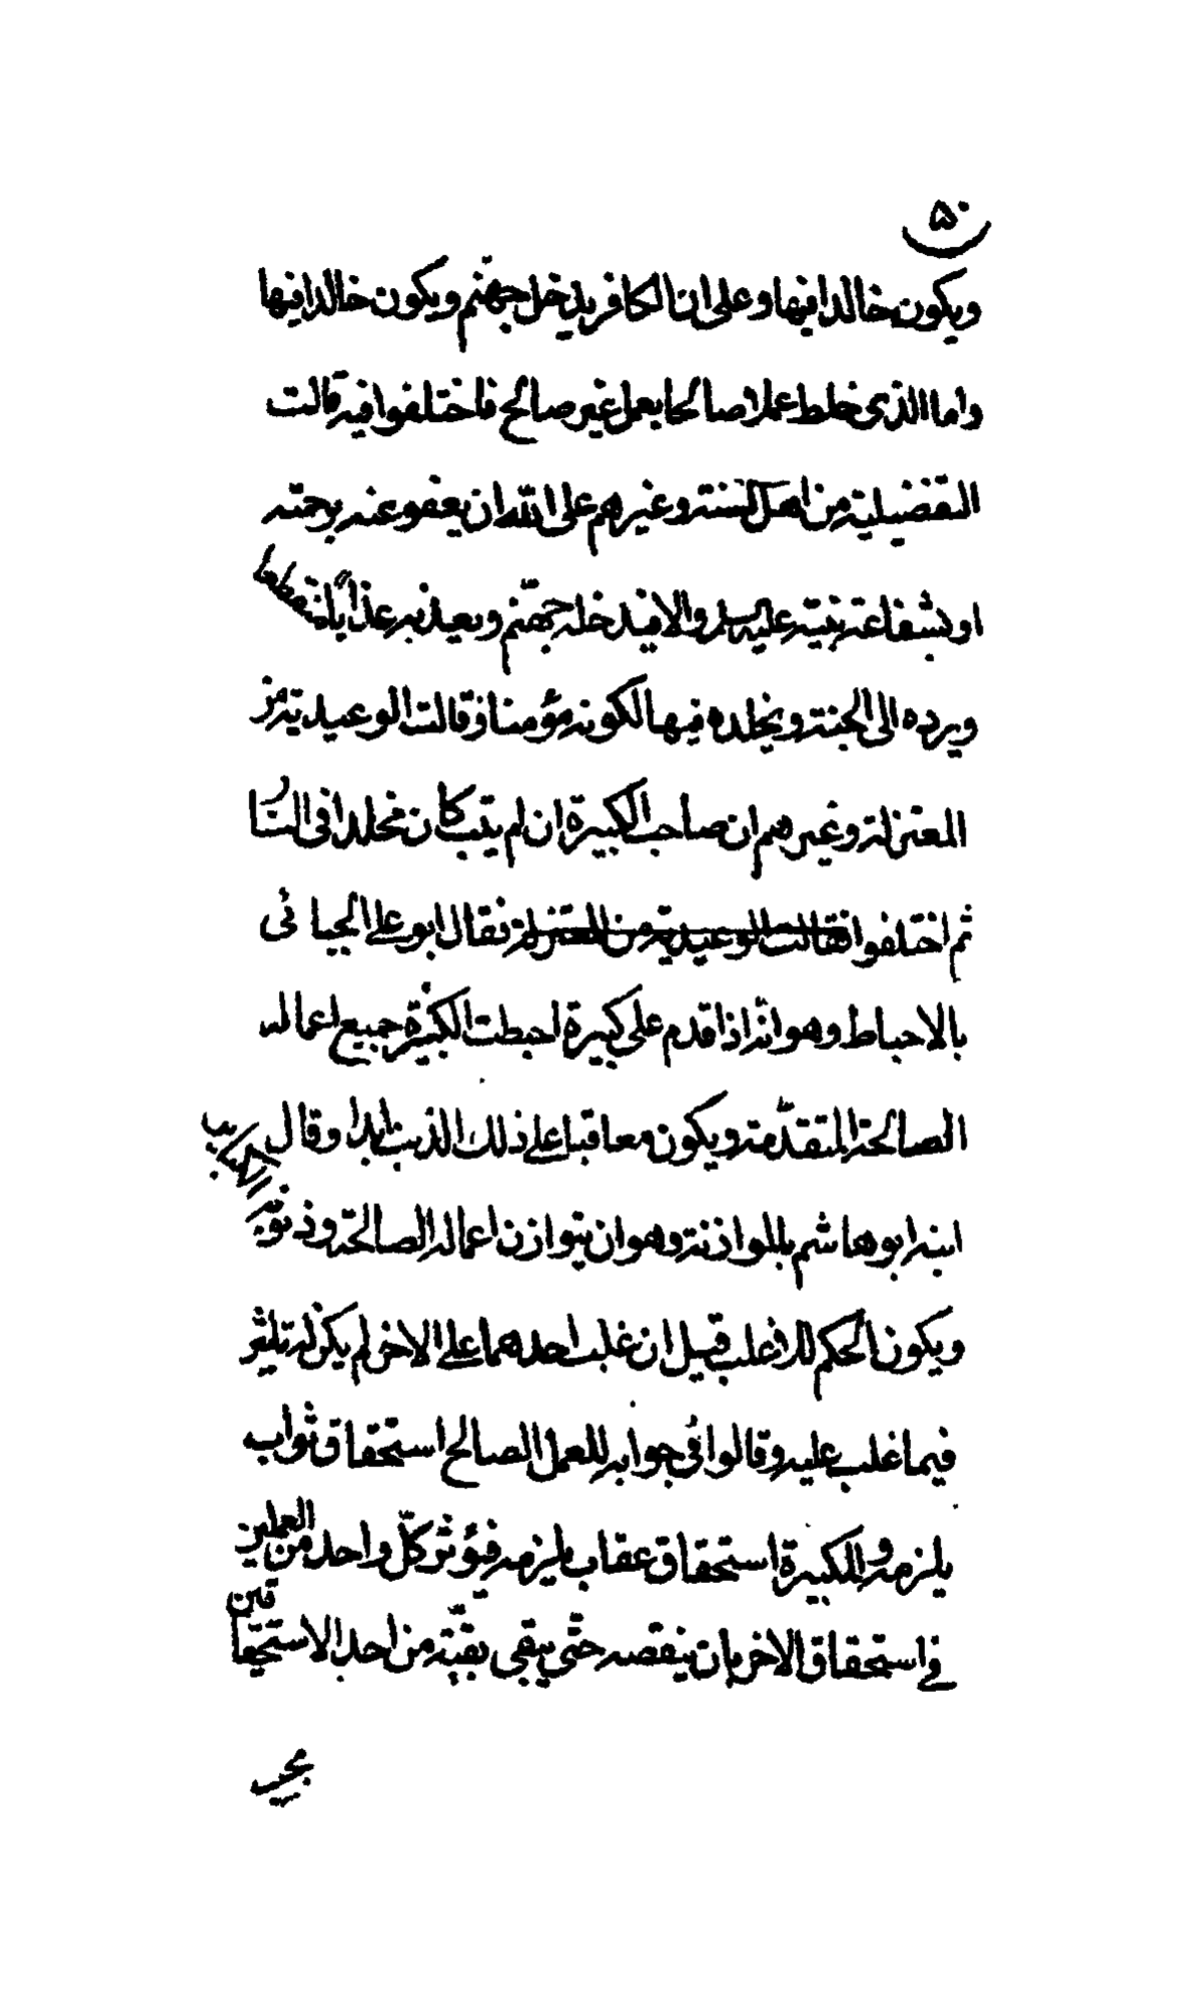 ۵۰
ويكون خالدا فيها وعلى ان الكافر يدخل جهنم ويكون خالدا فيها
واما الذى خلط عملا صالحا بعمل غير صالح فاختلفوا فيه قالت
التفضيلية من اهل السنة وغيرهم على الله ان يعفو عنه برحمته
او بشفاعة نبيّه عليه السلم والا فيدخله جهنّم ويعذبه عذابًا منقطعا
ويرده الى الجنة ويخلده فيها لكونه مؤمنا وقالت الوعيدية من
المعتزلة وغيرهم ان صاحب الكبيرة ان لم يتب كان مخلدا فى النار
ثم اختلفوا فقالت الوعيدية من المعتزلة فقال ابو على الجبائى
بالاحباط وهو انّه اذا قدم على كبيرة احبطت الكبيرة جميع اعماله
الصالحة المتقدّمة ويكون معاقبا على ذلك الذنب ابدا وقال
ابنه ابو هاشم بالموازنة وهو ان يتوازن اعماله الصالحة وذنوبه الكباير
ويكون الحكم للاغلب قيل ان غلب احدهما على الاخر لم يكن له تاثير
فيما غلب عليه وقالوا فى جوابه للعمل الصالح استحقاق ثواب
يلزمه وللكبيرة استحقاق عقاب يلزمه فيؤثر كلّ واحد من العملين
فى استحقاق الاخر بان ينقصه حتّى يبقى بقيّة من احد الاستحقاقين